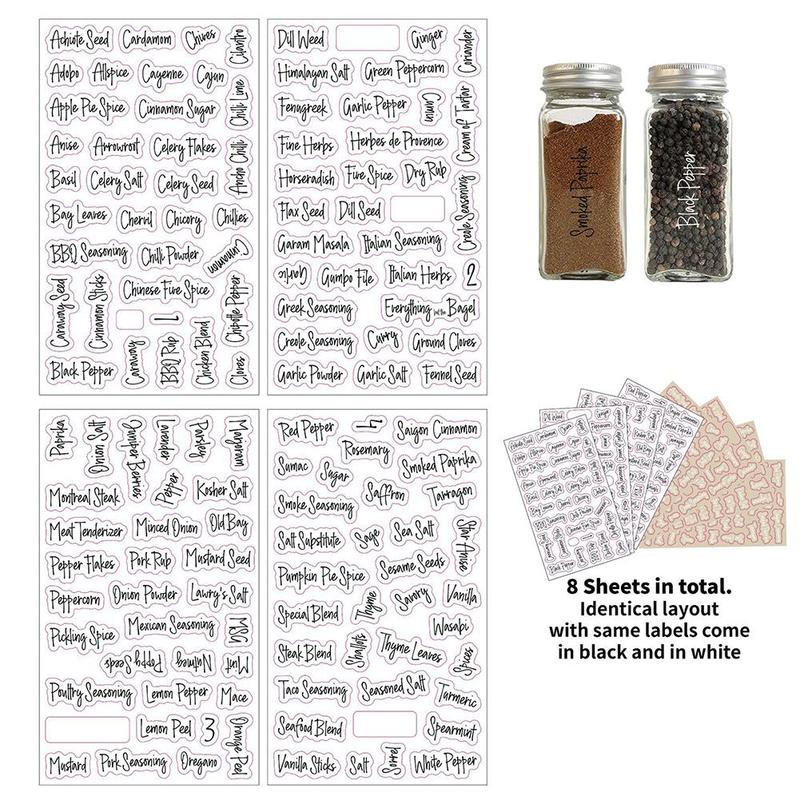 Achiote Seed
Cardamom
Chives
Cilantro
Adobo
Allspice
Cayenne
Cajun
Chili Lime
Apple Pie Spice
Cinnamon Sugar
Anise
Arrowroot
Celery Flakes
Ancho Chili
Basil
Celery Salt
Celery Seed
Bay Leaves
Chervil
Chicory
Chilies
BBQ Seasoning
Chili Powder
Cinnamon
Caraway Seed
Cinnamon Sticks
Chinese Five Spice
Chipotle Pepper
1
Black Pepper
Caraway
BBQ Rub
Chicken Blend
Cloves
Dill Weed
Ginger
Coriander
Himalayan Salt
Green Peppercorn
Fenugreek
Garlic Pepper
Cumin
Cream of Tartar
Fine Herbs
Herbes de Provence
Horseradish
Five Spice
Dry Rub
Flax Seed
Dill Seed
Creole Seasoning
Garam Masala
Italian Seasoning
Garlic
Gumbo File
Italian Herbs
2
Greek Seasoning
Everything but the Bagel
Creole Seasoning
Curry
Ground Cloves
Garlic Powder
Garlic Salt
Fennel Seed
Paprika
Onion Salt
Juniper Berries
Lavender
Parsley
Marjoram
Montreal Steak
Pepper
Kosher Salt
Meat Tenderizer
Minced Onion
Old Bay
Pepper Flakes
Pork Rub
Mustard Seed
Peppercorn
Onion Powder
Lawry's Salt
Pickling Spice
Mexican Seasoning
MSG
Poppy Seeds
Nutmeg
Mint
Poultry Seasoning
Lemon Pepper
Mace
Lemon Peel
3
Orange Peel
Mustard
Pork Seasoning
Oregano
Red Pepper
4
Saigon Cinnamon
Rosemary
Sumac
Sugar
Smoked Paprika
Smoke Seasoning
Saffron
Tarragon
Salt Substitute
Soye
Sea Salt
Star Anise
Pumpkin Pie Spice
Sesame Seeds
Special Blend
Thyme
Savory
Vanilla
Wasabi
Steak Blend
Shallots
Thyme Leaves
Spices
Taco Seasoning
Seasoned Salt
Turmeric
Seafood Blend
Spearmint
Vanilla Sticks
Salt
Sorrel
White Pepper
Smoked Paprika
Black Pepper
8 Sheets in total.
Identical layout
with same labels come
in black and in white